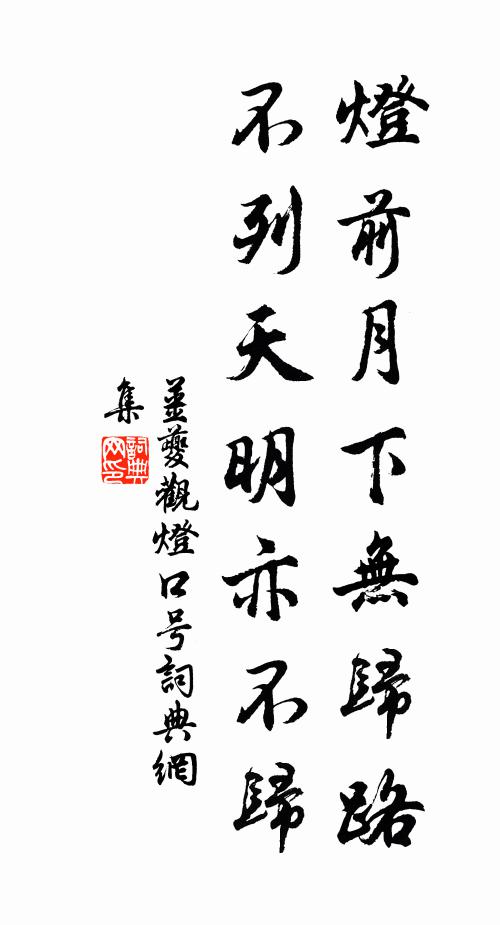 燈前月下無歸路
不列天明亦不歸
姜夔觀燈口号詞典網
集
詞典
网印